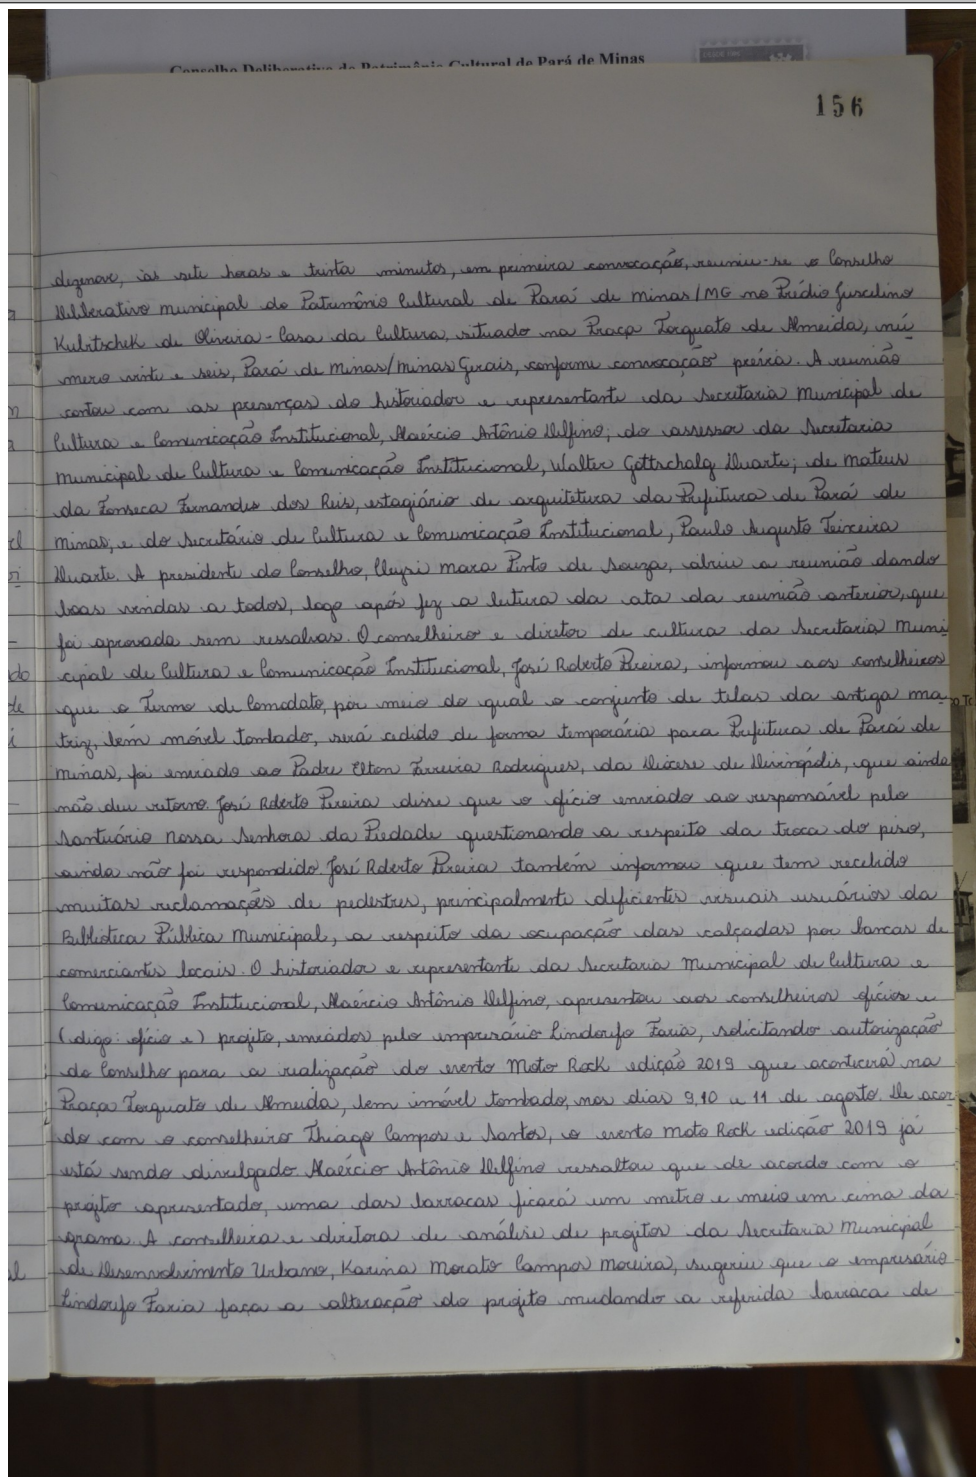 Conselho Deliberativo do Patrimônio Cultural de Pará de Minas
156
dezenove, às sete horas e trinta minutos, em primeira convocação, reuniu-se o Conselho
Deliberativo Municipal do Patrimônio Cultural de Pará de Minas/MG no Prédio Juscelino
Kubitschek de Oliveira - Casa da Cultura, situado na Praça Torquato de Almeida, nú
mero vinte e seis, Pará de Minas/Minas Gerais, conforme convocação prévia. A reunião
contou com as presenças do historiador e representante da Secretaria Municipal de
Cultura e Comunicação Institucional, Alaércio Antônio Delfino; do assessor da Secretaria
Municipal de Cultura e Comunicação Institucional, Walter Gottschalg Duarte; de Mateus
da Fonseca Fernandes dos Reis, estagiário de arquitetura da Prefeitura de Pará de
Minas, e do Secretário de Cultura e Comunicação Institucional, Paulo Augusto Teixeira
Duarte. A presidente do Conselho, Cleysi Mara Pinto de Souza, abriu a reunião dando
boas vindas a todos, logo após fez a leitura da ata da reunião anterior, que
foi aprovada sem ressalvas. O conselheiro e diretor de cultura da Secretaria Muni
cipal de Cultura e Comunicação Institucional, José Roberto Pereira, informou aos conselheiros
que o Termo de Comodato, por meio do qual o conjunto de telas da antiga ma
triz, bem móvel tombado, será cedido de forma temporária para Prefeitura de Pará de
Minas, foi enviado ao Padre Elton Ferreira Rodrigues, da Diocese de Divinópolis, que ainda
não deu retorno. José Roberto Pereira disse que o ofício enviado ao responsável pelo
Santuário Nossa Senhora da Piedade questionando a respeito da troca do piso,
ainda não foi respondido. José Roberto Pereira também informou que tem recebido
muitas reclamações de pedestres, principalmente deficientes visuais usuários da
Biblioteca Pública Municipal, a respeito da ocupação das calçadas por bancas de
comerciantes locais. O historiador e representante da Secretaria Municipal de Cultura e
Comunicação Institucional, Alaércio Antônio Delfino, apresentou aos conselheiros ofícios e
(digo: ofício e) projeto, enviados pelo empresário Lindorifo Faria, solicitando autorização
do Conselho para a realização do evento Moto Rock edição 2019 que acontecerá na
Praça Torquato de Almeida, bem imóvel tombado, nos dias 9, 10 e 11 de agosto. De acor
do com o conselheiro Thiago Campos e Santos, o evento Moto Rock edição 2019 já
está sendo divulgado. Alaércio Antônio Delfino ressaltou que de acordo com o
projeto apresentado, uma das barracas ficará um metro e meio em cima da
grama. A conselheira e diretora de análise de projetos da Secretaria Municipal
de Desenvolvimento Urbano, Karina Morato Campos Moreira, sugeriu que o empresário
Lindorifo Faria faça a alteração do projeto mudando a referida barraca de